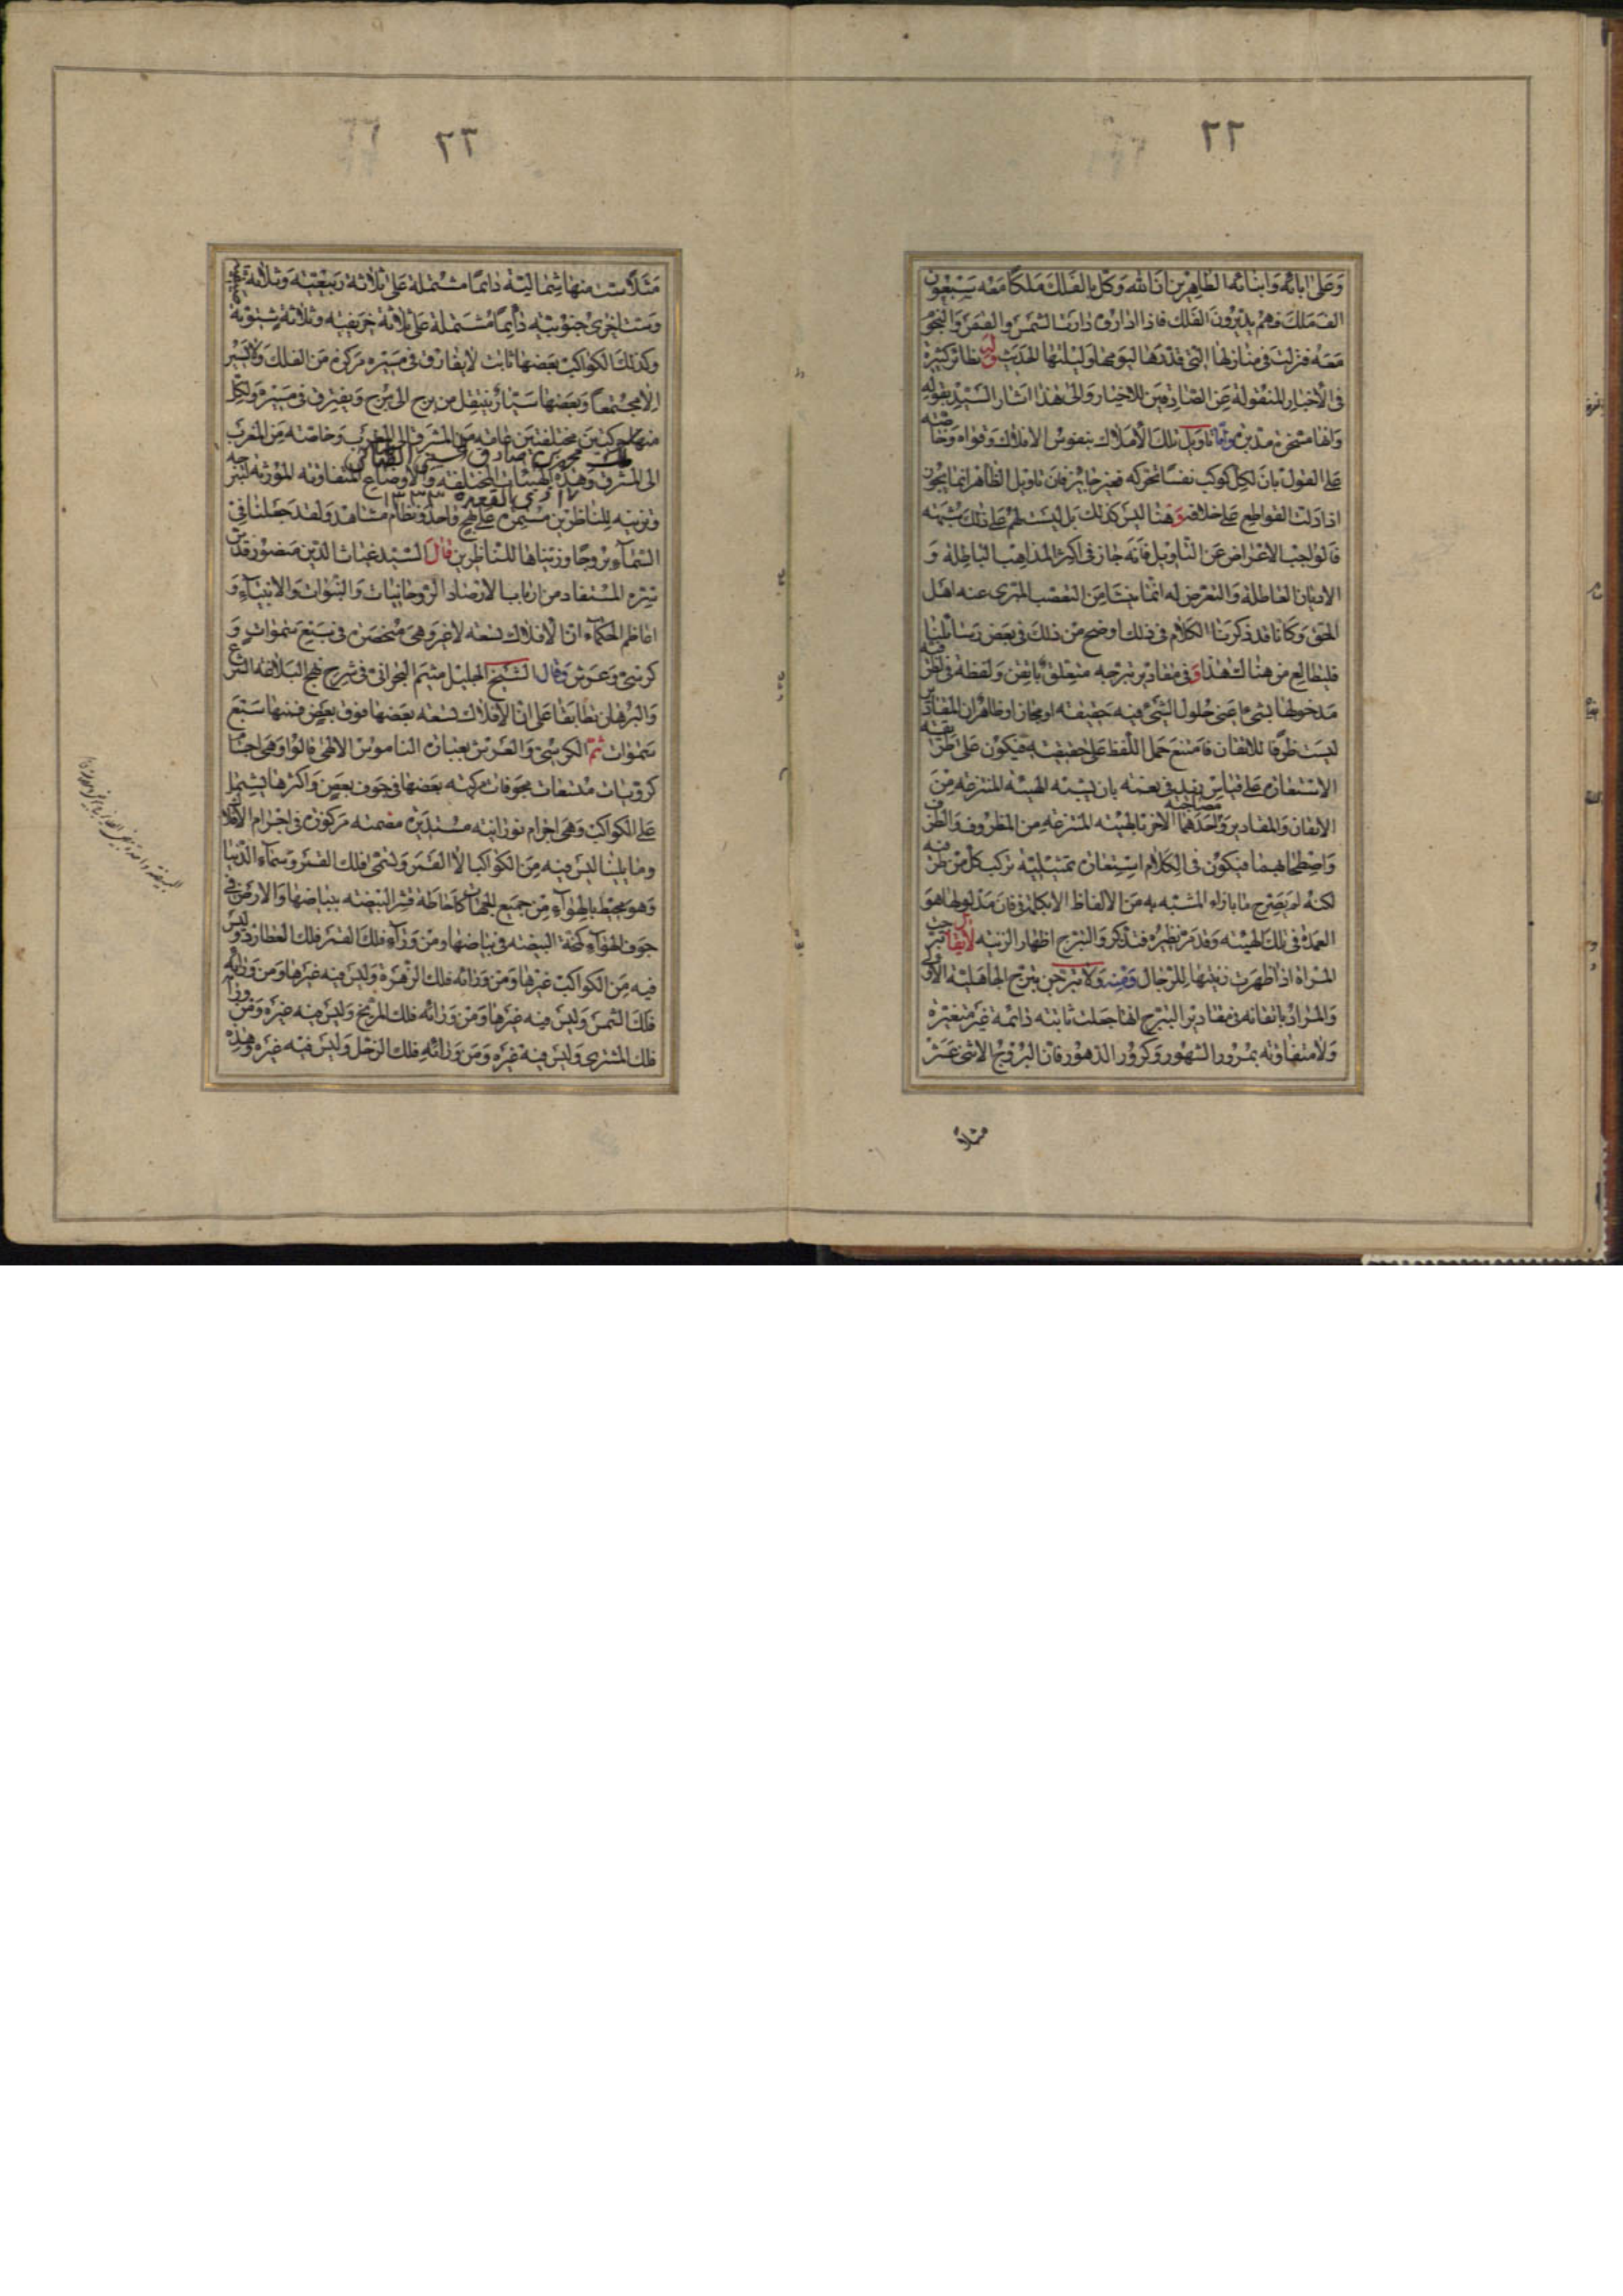 ٢٢
وَعَلى ابائه وَابنائه الطاهِرين انَّ الله وَكّلَ بالفَلك مَلكًا مَعَه سَبعُون
الف مَلك فَهم يديرُونَ الفَلك فاذا اداروه دارَت الشمسُ والقمَر وَالنجوُ
مَعَه فنزلت فى منازلها التى قدّرَها اليومها وَليلتها الحَديث وله نظائر كثيرة
فى الاخبار المنقولة عَن الصّادِقين الاخيار وَالى هذا اشار السَيّد بقوله
وَانها مسَخرة مدبرة وامّا تاويل تلك الاَملاك بنفوس الافلاك وَقواه وَخا صّته
عَلى القول بان لكل كوكب نفسًا تحركه فغير جايز فان تاويل الظاهر انما يجوز
اذا دَلت القواطِع عَلى خلافه وَهنا ليسَ كذلك بَل ليسَت لهُم عَلى ذلك شبهَه
فالواجب الاعراض عَن التاويل فانّه جاز فى اكثر المذاهب الباطِلة وَ
الاديان العاطلة وَالتعرض له انّما نشا مِن التعَصب المتبرى عنه اهل
الحَق وَكانا قد ذكرنا الكلام فى ذلك اوضح مِن ذلكَ فى بَعض رَسَائلنا
فليطالع من هنالك هذا وَ فى مقادير تبرجه متعلق باتقن وَلفظة فى لظر فية
مَدخولها بشئ بمَعنى حلول الشئ فيه حَقيقة او مجاز اوظاهر ان المقادير
ليسَت ظرفًا للاتقان فامتنعَ حَمل اللفظ عَلى حقيقته فيكون عَلى طر يقة
الاستعَارة عَلى قياس زيد فى نعمة بان يشبّه الهيئة المنتزعة مِنَ
الاتقان وَالمقادير وَمصاحبة احَدهما الاخر بالهيئة المنتزعة مِن المظروف وَالظر ف
وَاصطحابهما فيكون فى الكلام استعارة تمثيلية تركب كل من طر فيه
لكنه لم يصَرح مما بازاء المشبّه به مِن الالفاظ الا بكلمة فى فان مَدلولها هوَ
العمدَة فى تلك الهيئة وَقد مرّ نظيره فتذكر وَالتبرج اظهار الزينة لايقال تبر جت
المراة اذا اظهَرت زينتها للرّجال وَمِنه وَلا تبرّجن تبرج الجاهلية الاو لى
وَالمراد باتقانه فى مقادير التبرج انها جَعلت ثابتة دائمة غَير متغيّرة
وَلا متفاوتة بمرور الشهور وَكرور الدهور فان البروج الاثنى عَشر
مثلا
٢٣
مَثَلًا ست منها شِمالية دايمًا مشتملة عَلى ثلاثة ربيعيّة وَثلاثة
وَست اخرى جنوبية دائمًا مُشتملة عَلى ثلاثة خريفية وثلاثة شِتوية
وكذلك الكواكب بَعضها ثابت لايفارق فى مسَيره مركزه مِن الفلك وَلا يسير
الا مجتمعًا وَبعَضها سَيّار ينتقل من برج الى برج وَيفترق فى مسَيره وَلكل
منها حركتين مختلفتين عامّه مِن المشرق الى المغرب وَخاصّته مِن المغرب
مالك محمد بن صادق الحسينى الطباطبائى
الى المشرق وَهذه الهيئات المختلفة وَالاوضاع المتفاوتة المؤثرة لتبر جه
١٧ ذى القعده ١٣٣٣
وتزيينه للناظرين مستمرة عَلى نهج واحد وَنظام مشاهد وَلقد جَعلنا فى
السَّمآء بروجًا وزيّناها للناظرين قال السَّيد غياث الدّين منصور قدّس
سّره المستفاد من ارباب الارصَاد الروحانيات وَالنبوات وَالانبيآء وَ
اعاظم الحكماء ان الافلاك تسعة لاغير وَهى منحصَرة فى سَبع سمَوات وَ
كرسىّ وَعرش وَقال الشَيخ الجليل ميثم البحرانى فى شرح نهج البَلاغة الشر ع
وَالبرهان تطابقا عَلى ان الافلاك تسعة بعَضها فوق بعَض فمنها سَبع
سَموات ثمّ الكرسىّ وَالعَرش بعبارة الناموس الالهى قالوا وَهى اجسا
كرويات مشفات مجوفات مركبه بَعضها فى جَوف بعَض وَاكثرها يشتمل
عَلى الكواكب وَهى اجرام نورانية مستديرة مصَمتة مركوزة فى اجرام الافلا ك
وما يلينا ليسَ فيه مِن الكواكب الاّ القمَر وَيسمّى فلك القمر وسمَآء الدّنيا
وَهو محيط بالهوآء مِن جَميع الجهات كاحَاطة قشر البيضة ببياضها وَالارض فى
جوف الهوآء كمحّة البيضة فى بياضها ومن وَرآء فلك القمَر فلك العطارد وَليسَ
فيه مِن الكواكب غيرها وَمن وَرائه فلك الزهرة وَليسَ فيه غيرها وَمن وَرائه
فلك الشمس وَليسَ فيه غيرها وَمن وَرائه فلك المريخ وَليسَ فيه غيره وَمن ورائه
فلك المشترى وَليسَ فيه غيره وَمن وَرائهِ فلك الزحل وَليسَ فيه غيره وَهذه